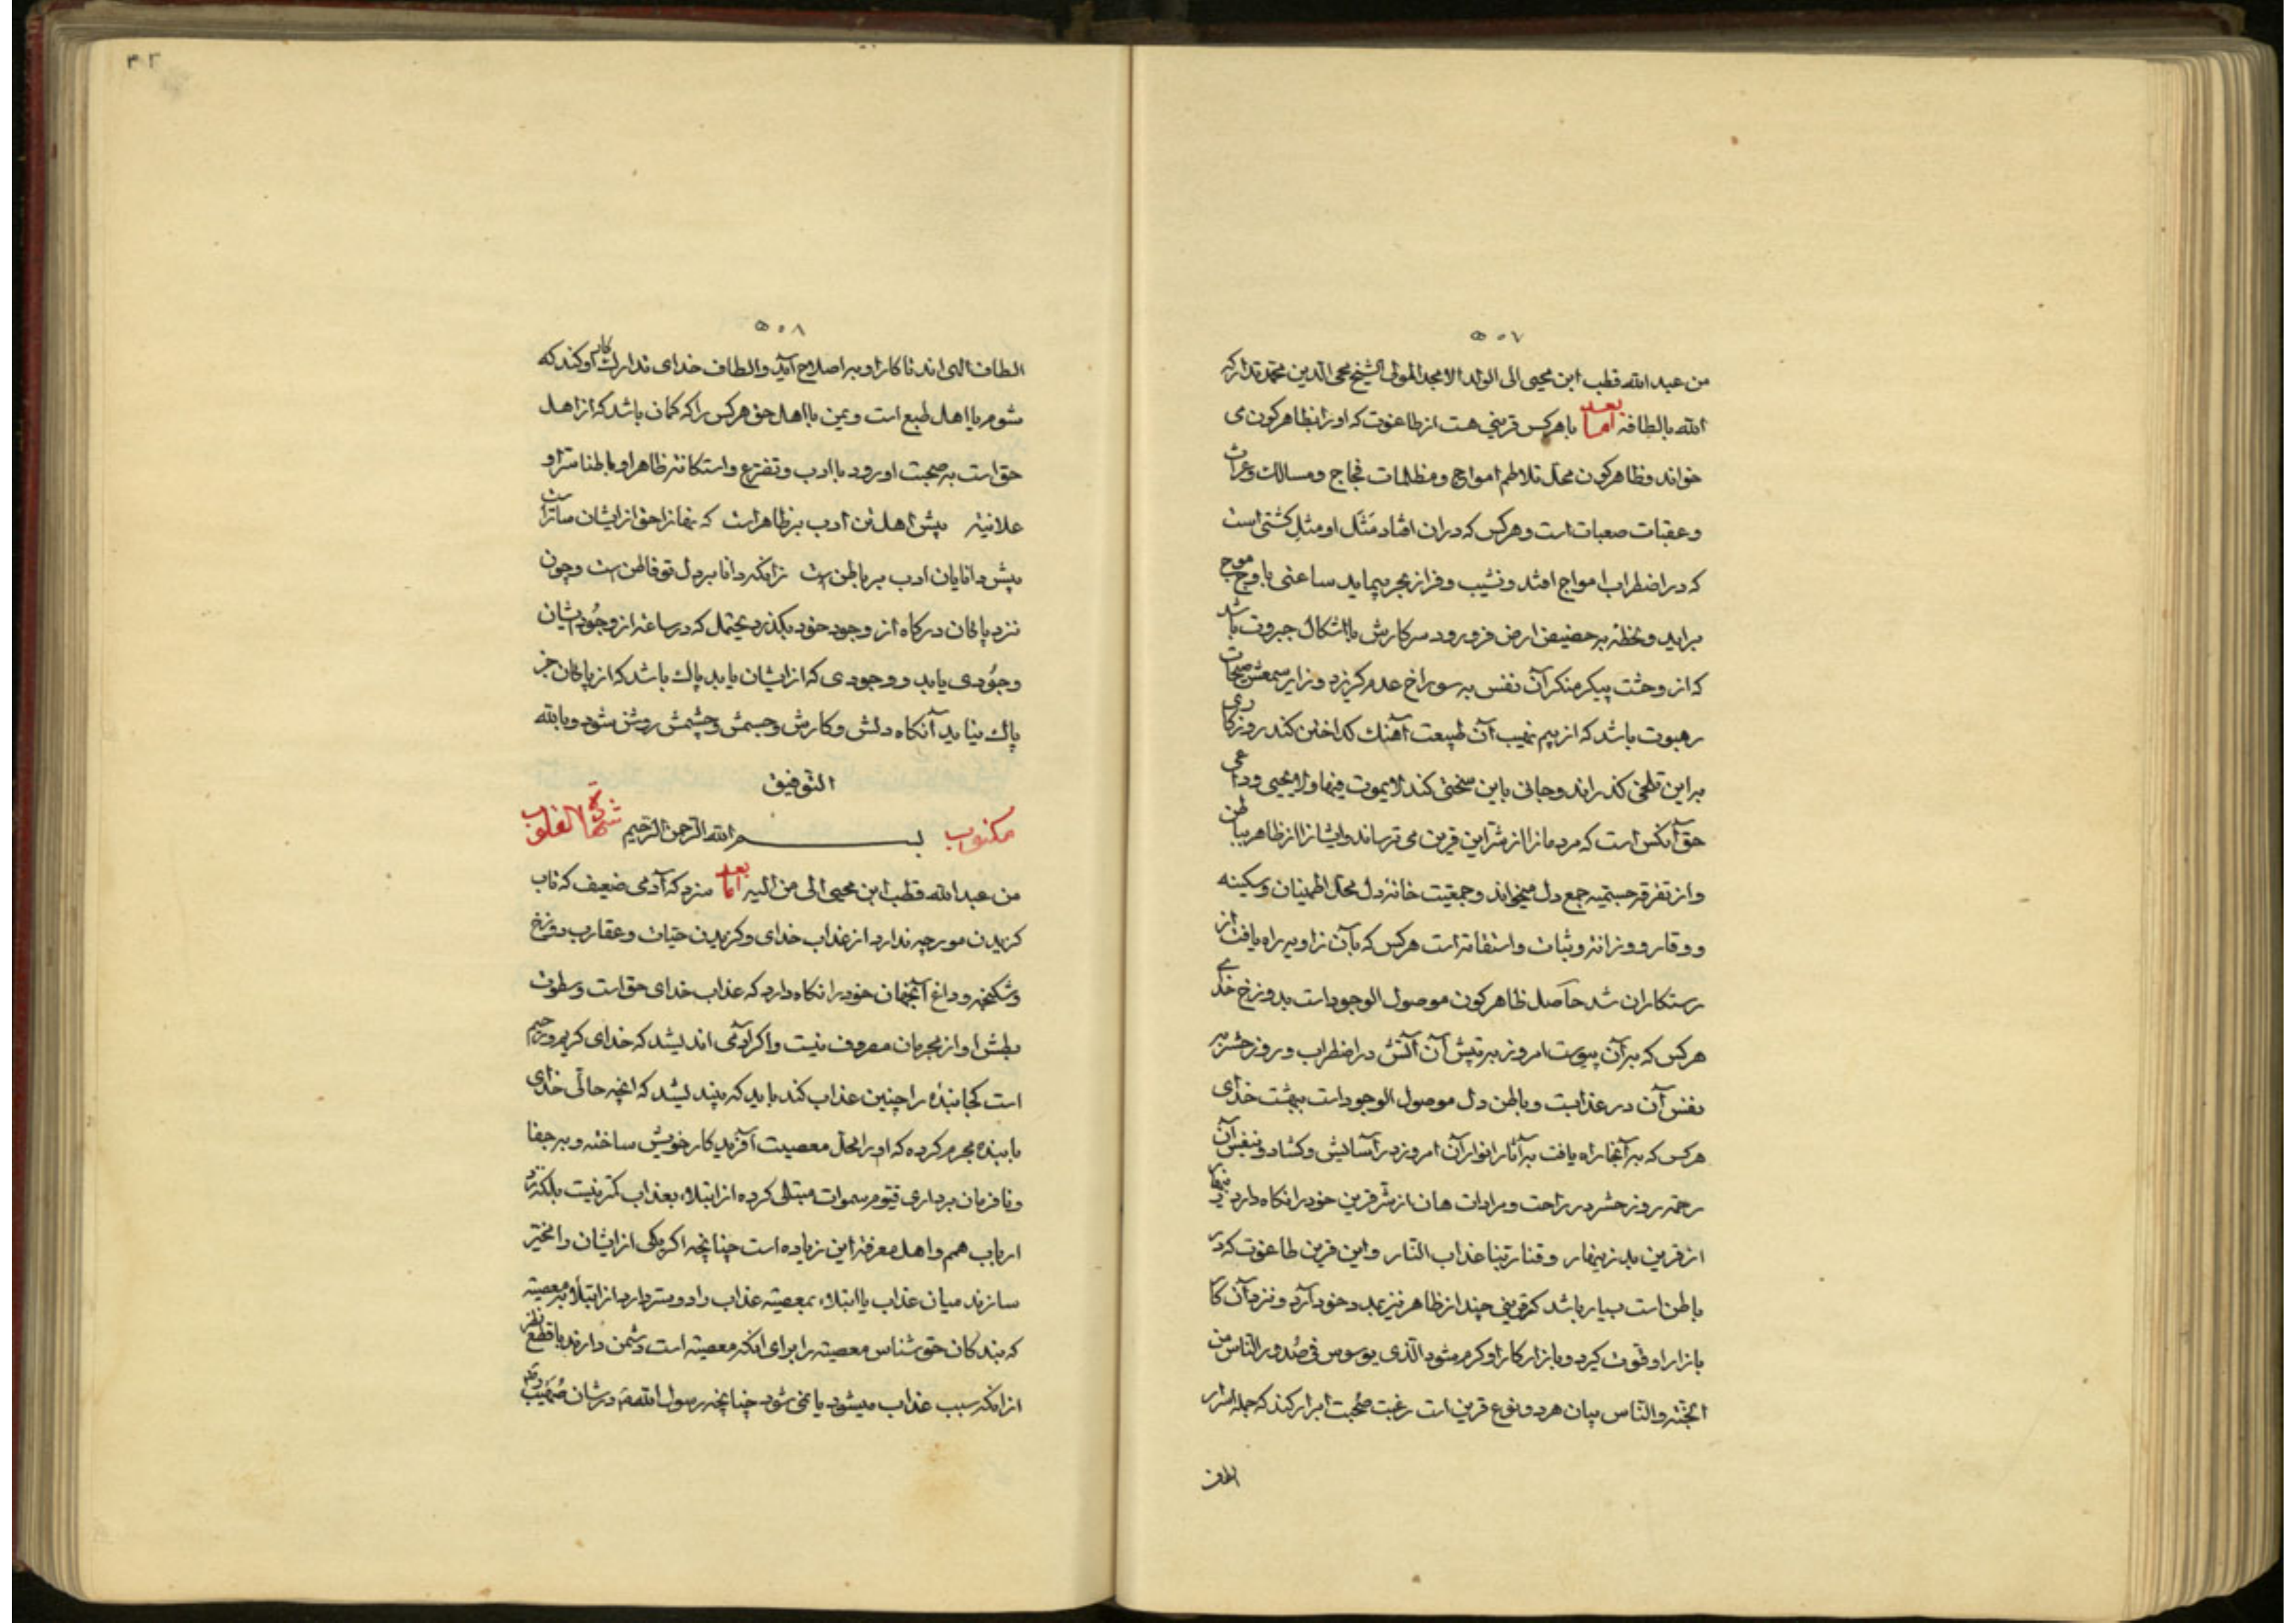 ۵۰۷
من عبد الله قطب ابن محیی الی الولد الامجد المولی الشیخ محی الدین محمد تدارکه
الله بالطافه اما بعد با هرکس قرینی هست از طاغوت که او را بظاهر کون می
خواند و ظاهر کون محل تلاطم امواج و مظلمات فجاج و مسالك وعرات
و عقبات صعبات است و هرکس که در ان افتاد مَثَل او مثلِ کشتی است
که در اضطراب امواج افتد و نشیب و فراز بحر پیماید ساعتی با وج موج
براید و لحظهٔ به حضیض ارض فرو رود سر کارش با اشکال جبروت باشد
که از وحشت پیکر منکر آن نفس به سوراخ عدم کریزد و نزایر سمعش
رهبوت باشد که از بیم نهیب آن طبیعت آهنك کداختن کند روزکاری
براین تلخی کذراند و جانی باین سختی کند لا یموت فیها ولا یحیی و داعی
حق آنکس است که مردمانرا از شر این قرین می ترساند و ایشانرا از ظاهر بباطن
و از تفرقه جسمیه جمع دل میخواند و جمعیت خانهٔ دل محل اطمینان و سکینه
و وقار و وزانة و ثبات و استقامة است هرکس که بآن زاویه راه یافت از
رستکاران شد حاصل ظاهر کون موصول الوجود است بدوزخ خدای
هرکس که بر آن پیوست امروز بر تپش آن آتش در اضطراب و روز حشر بر
نفس آن در عذابست و باطن دل موصول الوجود است ببهشت خدای
هرکس که بر آنجا راه یافت بر آثار انوار آن امروز در آسایش و کشاد و بنفس آن
رحمة روز حشر در راحت و مرادات هان از شر قرین خود را نکاه دارید زینهار
از قرین بد زینهار وقنا ربنا عذاب النار و این قرین طاغوت که در
باطن است بسیار باشد که قرینی چند از ظاهر نیز بمدد خود آرد و نزد آن کا
بازار او قوت کیرد و بازار کار او کرم شود الذی یوسوس فی صدور الناس من
الجنة والناس بیان هر دو نوع قرین است رغبت صُحبت ابرار کند که جمله اسرار
الطاف
۵۰۸
الطاف الهی اند تا کار او بر اصلاح آید و الطاف خدای تدارك کار او کند که
شوم با اهل طبع است و یمن با اهل حق هرکس را که کمان باشد که از اهل
حق است به صحبت او رود با ادب و تضرع و استکانة ظاهرا و باطنا سرا و
علانیة پیش اهل تن ادب بر ظاهر است که خدا زیشان نهانرا ساتر است
پیش دانایان ادب بر باطن است زانکه دانا بر دل تو فاطن است و چون
نزد پاکان درکاه از وجود خود بکذرد یحتمل که در ساعة از وجُود ایشان
وجُودی یابد و وجودی که از ایشان یابد پاك باشد که از پاکان جز
پاك نیاید آنکاه دلش و کارش و جسمش و چشمش روشن شود و بالله
التوفیق
مکتوب بسم الله الرحمن الرحیم القلوب
من عبد الله قطب ابن محیی الی من الیه اما بعد سزد که آدمی ضعیف که تاب
کزیدن مورچه ندارد از عذاب خدای و کزیدن حیات و عقارب دوزخ
و شکنجه و داغ آنجهان خود را نکاه دارد که عذاب خدای حق است و سطوت
بطش او از مجرمان مصروف نیست و اکر آدمی اندیشد که خدای کریم و رحیم
است کجا بندهٔ را چنین عذاب کند باید که بیندیشد که انچه حالی خدای
با بنده مجرم کرده که او را محل معصیت آفریدکار خویش ساخته و بر جفا
و نافرمان برداری قیوم سموات مبتلی کرده از ابتلاء بعذاب کمتر نیست بلکه نزد
ارباب همم و اهل معرفة این زیاده است چنانچه اکر یکی از ایشان را مخیر
سازند میان عذاب یا ابتلاء بمعصیة عذاب را دوستر دارد از ابتلاء بر معصیة
که بندکان حق شناس معصیة را برای انکه معصیة است دشمن دارند با قطع نظر
از انکه سبب عذاب میشود یا نمی شود چنانچه رسول الله در شان صُهَیب